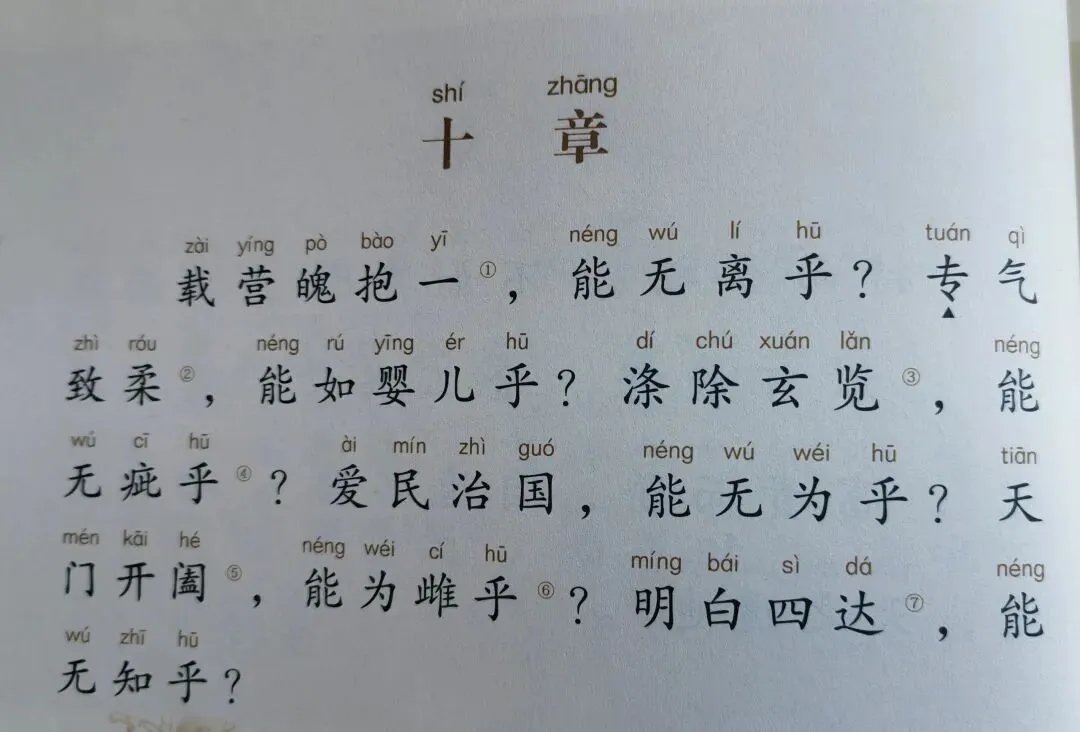 shí zhāng
十 章
zài yíng pò bào yī néng wú lí hū tuán qì
载营魄抱一①，能无离乎？专气
zhì róu néng rú yīng ér hū dí chú xuán lǎn néng
致柔②，能如婴儿乎？涤除玄览③，能
wú cī hū ài mín zhì guó néng wú wéi hū tiān
无疵乎④？爱民治国，能无为乎？天
mén kāi hé néng wéi cí hū míng bái sì dá néng
门开阖⑤，能为雌乎⑥？明白四达⑦，能
wú zhī hū
无知乎？